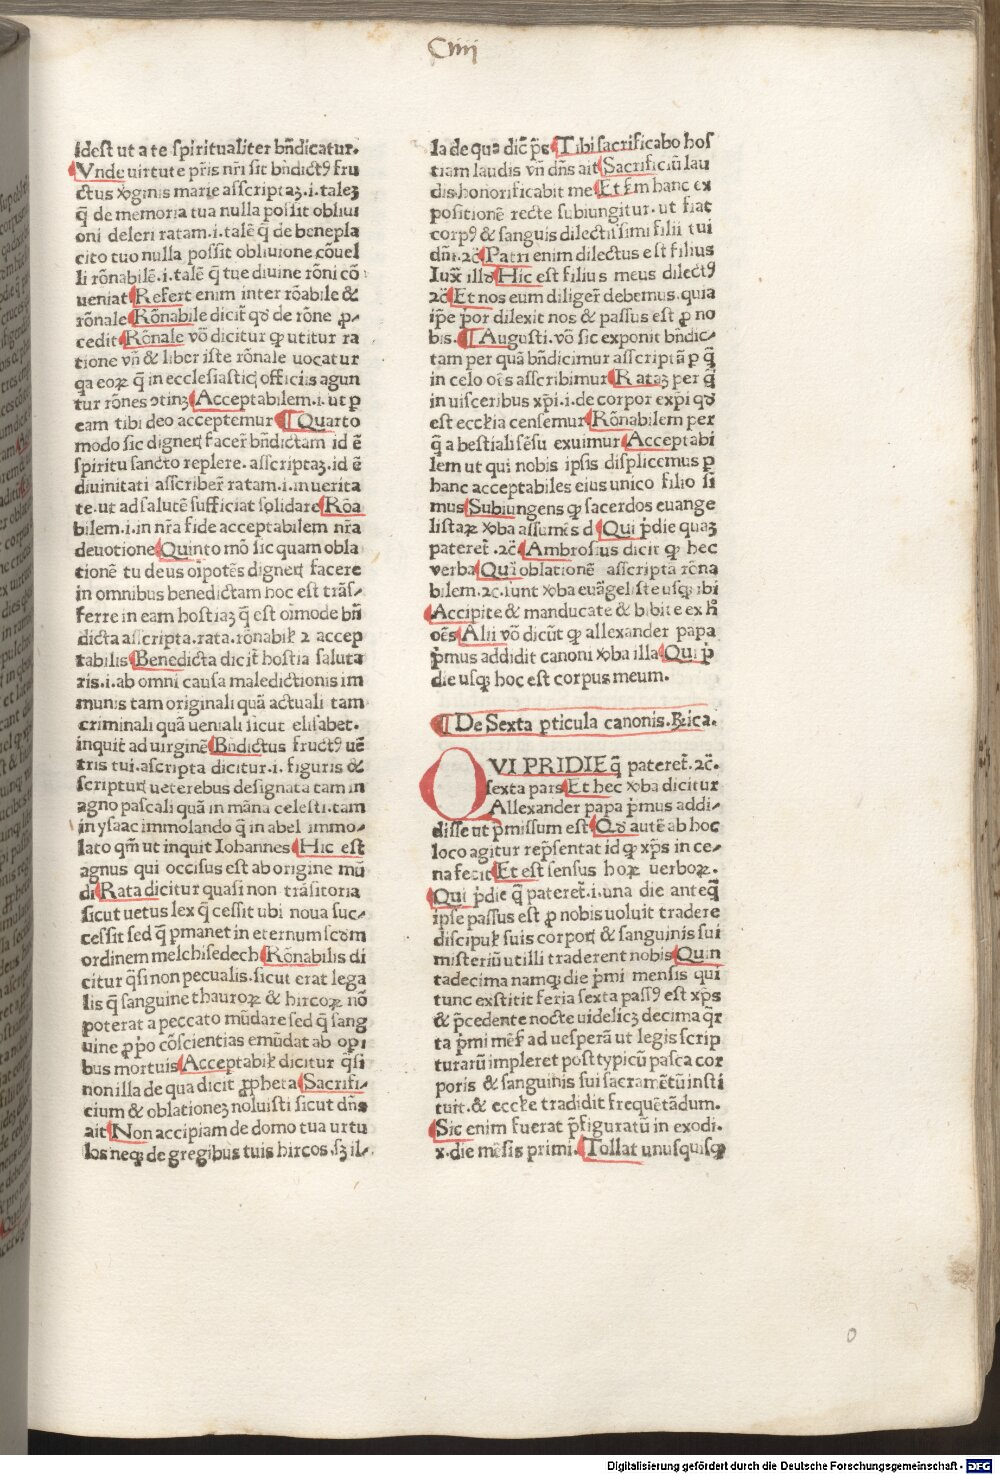 Ciiij
idest ut a te spiritualiter bn̄dicatur.
Vnde uirtute pr̄is nr̄i sit bn̄dictꝰ fru
ctus v̾ginis marie asscriptaꝫ.i.taleꝫ
q̄ de memoria tua nulla possit obliui
oni deleri ratam.i.talē q̄ de benepla
cito tuo nulla possit obliuione cōuel
li rōnabilē.i.talē q̄ tue diuine rōni cō
ueniat Refert enim inter rōabile &
rōnale Rōnabile dicit̄ qđ de rōne ꝓ-
cedit Rōnale vō dicitur ꝙ utitur ra
tione vn̄ & liber iste rōnale uocatur
qa eoꝝ q̄ in ecclesiasticꝭ officiis agun
tur rōnes ↄtinꝫ Acceptabilem.i.ut ꝑ
eam tibi deo acceptemur ¶ Quarto
modo sic dignerꝭ facer̄ bn̄dictam id ē
spiritu sancto replere. asscriptaꝫ.id ē
diuinitati asscriber̄ ratam.i.in uerita
te.ut ad salutē sufficiat solidare Rōa
bilem.i.in nr̄a fide acceptabilem nr̄a
deuotione Quinto mō sic quam obla
tionē tu deus oīpotēs dignerꝭ facere
in omnibus benedictam hoc est trās-
ferre in eam hostiaꝫ q̄ est oīmode bn̄
dicta asscripta.rata.rōnabiƚ ⁊ accep
tabilis Benedicta dicit̄ hostia saluta
ris.i.ab omni causa maledictionis im
munis tam originali quā actuali tam
criminali quā ueniali sicut elisabet.
inquit ad uirginē Bn̄dictus fructꝰ uē
tris tui.ascripta dicitur.i. figuris &
scripturꝭ ueterebus designata tam in
agno pascali quā in māna celesti.tam
in ysaac immolando q̄ in abel immo-
lato qm̄ ut inquit Iohannes Hic est
agnus qui occisus est ab origine mū
di Rata dicitur quasi non trāsitoria
sicut uetus lex q̄ cessit ubi noua suc-
cessit sed q̄ ꝑmanet in eternum scđm
ordinem melchisedech Rōnabilis di
citur q̄si non pecualis.sicut erat lega
lis q̄ sanguine thauroꝝ & hircoꝝ nō
poterat a peccato mūdare sed q̄ sang
uine ꝓpo cōscientias emūdat ab opi
bus mortuis Acceptabiƚ dicitur q̄si
non illa de qua dicit ꝓpheta Sacrifi-
cium & oblationeꝫ noluisti sicut dn̄s
ait Non accipiam de domo tua uitu
los neqꝫ de gregibus tuis hircos.sꝫ il-
la de qua dic̄ p̄s Tibi sacrificabo hos
tiam laudis vn̄ dn̄s ait Sacrificiū lau
dis.honorificabit me Et s̄m hanc ex
positionē recte subiungitur.ut fiat
corpꝰ & sanguis dilectissimi filii tui
dn̄i.⁊c̄ Patri enim dilectus est filius
Iux̄ illđ Hic est filius meus dilectꝰ
⁊c̄ Et nos eum diliger̄ debemus.quia
ip̄e p̄or dilexit nos & passus est ꝓ no
bis.¶ Augusti.vō sic exponit bn̄dic-
tam per quā bn̄dicimur asscriptā ꝑ q̄
in celo oēs asscribimur Rataꝫ per q̄
in uisceribus xp̄i.i.de corpor expi qđ
est eccƚia censemur Rōnabilem per
q̄ a bestiali sēsu exuimur Acceptabi
lem ut qui nobis ipsis displicemus ꝑ
hanc acceptabiles eius unico filio si
mus Subiungens ꝙ sacerdos euange
listaꝝ v̾ba assumēs đ Qui p̄die quaꝫ
pateret̄.⁊c̄ Ambrosius dicit ꝙ hec
verba Qui oblationē asscripta rōna
bilem.⁊c.sunt v̾ba euāgeliste usqꝫ ibi
Accipite & manducate & bibite ex h̄
oēs Alii vō dicūt ꝙ allexander papa
p̄mus addidit canoni v̾ba illa Qui p̄
die usqꝫ hoc est corpus meum.
¶ De Sexta ꝑticula canonis.Rica.
QVI PRIDIE q̄ pateret̄.⁊c̄.
sexta pars Et hec v̾ba dicitur
Allexander papa p̄mus addi-
disse ut p̄missum est Qđ autē ab hoc
loco agitur rep̄sentat id ꝙ xp̄s in ce-
na fecit Et est sensus hoꝝ uerboꝝ.
Qui p̄die q̄ pateret̄.i.una die anteq̄
ip̄se passus est ꝓ nobis uoluit tradere
discipuƚ suis corporꝭ & sanguinis sui
misteriū ut illi traderent nobis Quin
tadecima namqꝫ die p̄mi mensis qui
tunc exstitit feria sexta passꝰ est xp̄s
& p̄cedente nocte uidelicꝫ decima q̄r
ta p̄mi mēs̄ ad uesperā ut legis scrip
turarū impleret post typicū pasca cor
poris & sanguinis sui sacramētū insti
tuit.& eccƚe tradidit frequētādum.
Sic enim fuerat p̄figuratū in exodi.
x.die mēsis primi. Tollat unusquisqꝫ
Digitalisierung gefördert durch die Deutsche Forschungsgemeinschaft - DFG